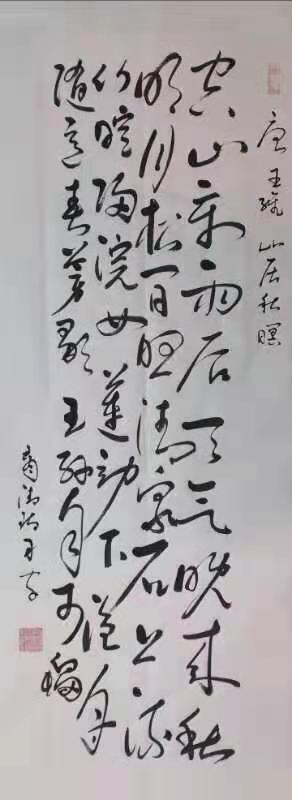 唐王维山居秋暝
空山新雨后天气晚来秋
明月松间照清泉石上流
竹喧归浣女莲动下渔舟
随意春芳歇王孙自可留